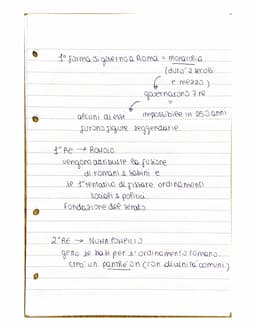 1° forma di governo a Roma = Monarchia
(durò 2 secoli
e mezzo)
governarono 7 re
alcuni di essi impossibile in 250 anni
furono figure leggendarie.
1° RE → ROMOLO
vengono attribuite la fusione
di romani e sabini e
le 1° tentativo di fissare ordinamenti
sociali e politici.
fondazione del senato.
2° RE → NUMA POMPILIO
getto le basi per l'ordinamento romano.
creò un pantheon (con divinità comuni)